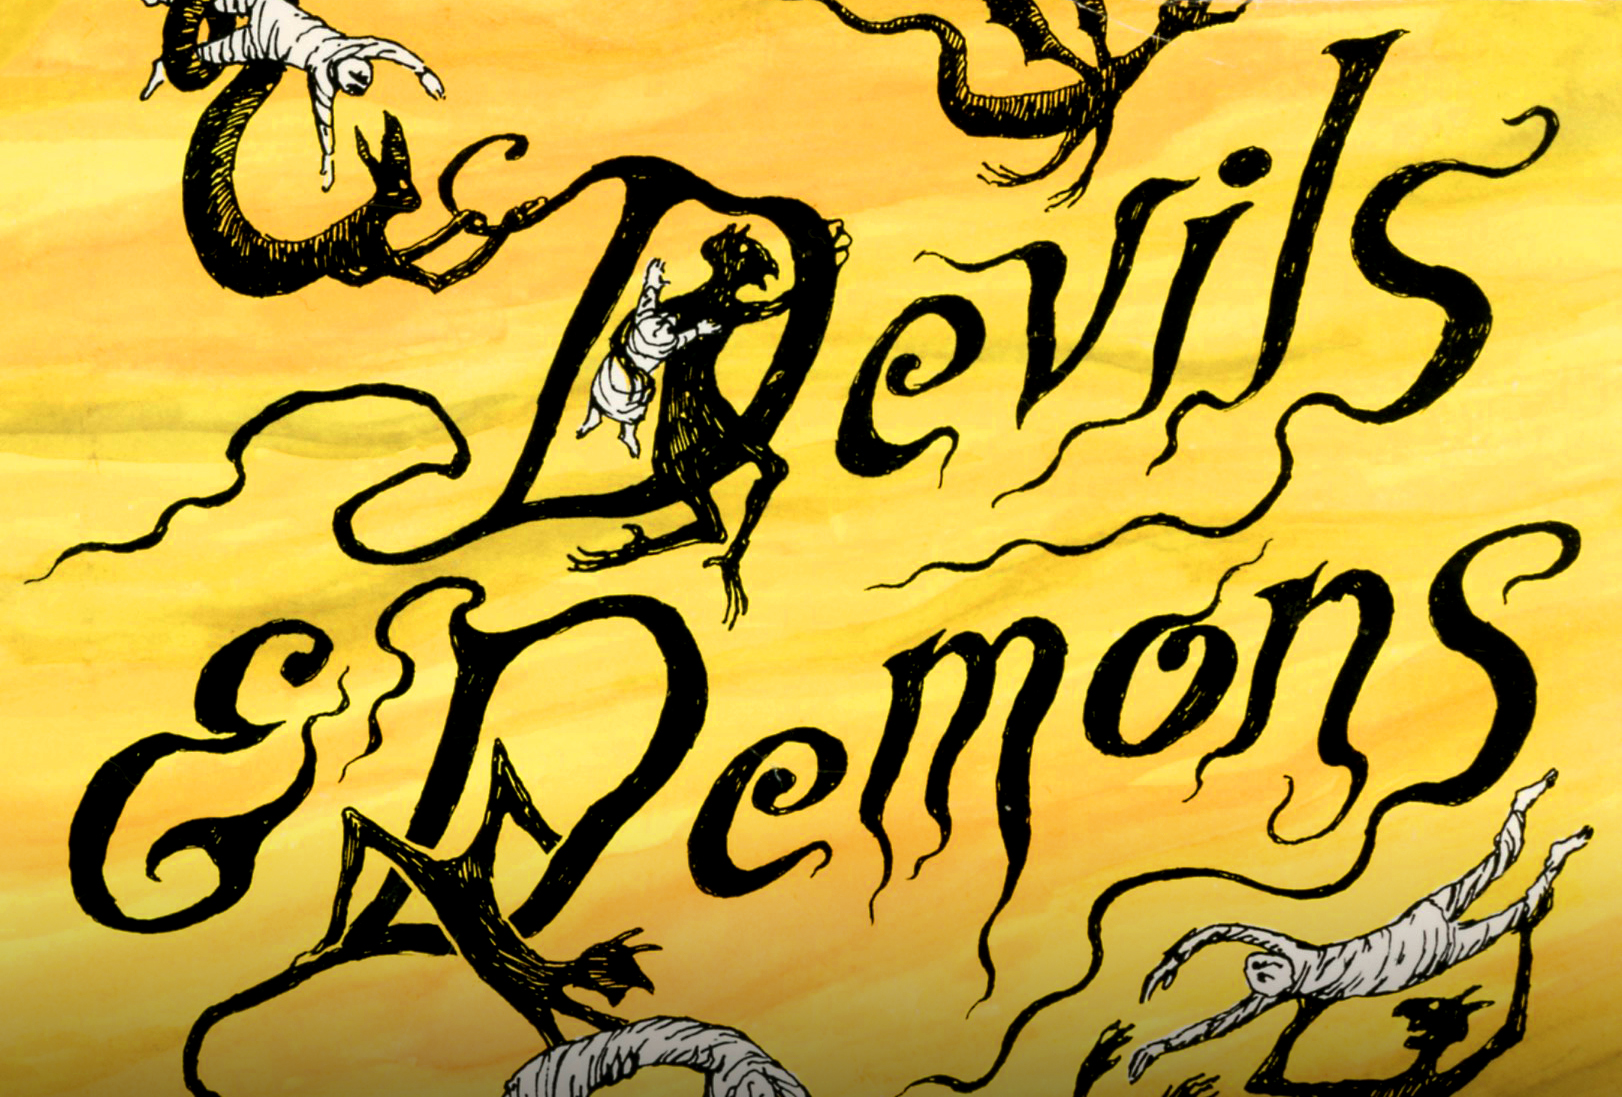 Devils
& Demons